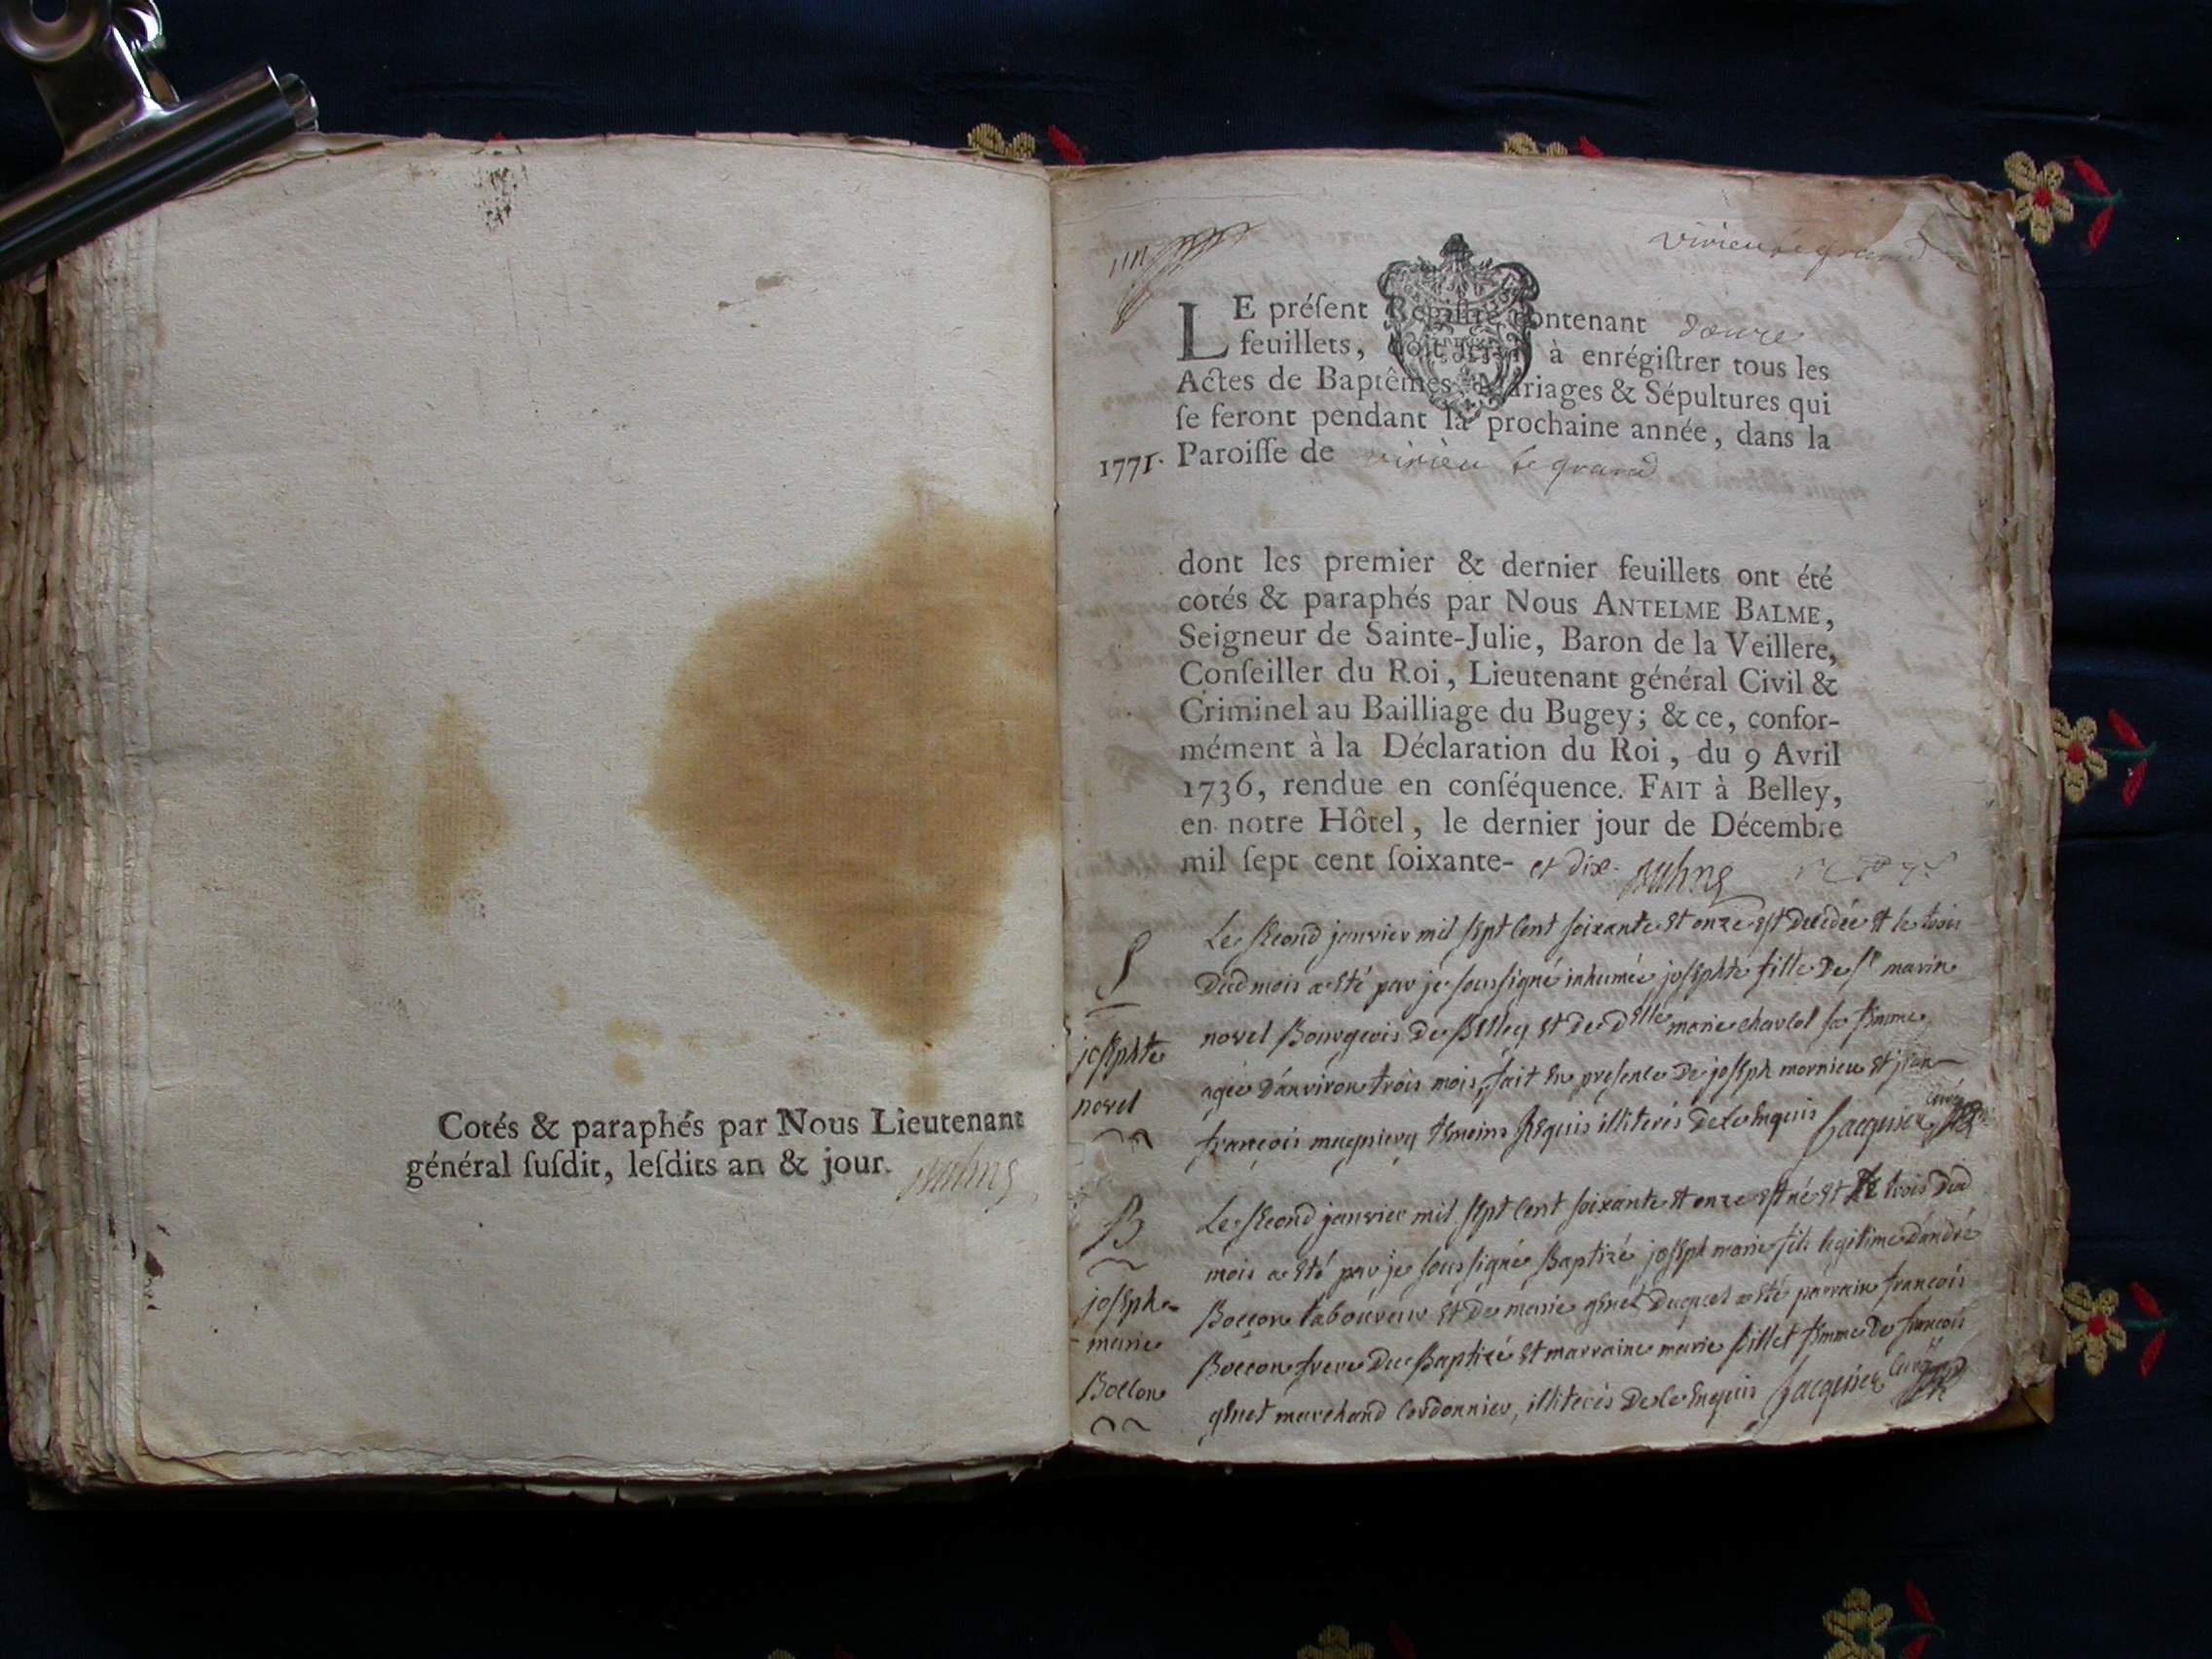 Cotés & paraphés par Nous Lieutenant
général ſuſdit, leſdits an & jour.
virieu le grand
LE préſent Regiſtre contenant douze
feuillets, doit ſervir à enrégiſtrer tous les
Actes de Baptêmes, Mariages & Sépultures qui
ſe feront pendant la prochaine année, dans la
1771. Paroiſſe de virieu le grand
dont les premier & dernier feuillets ont été
cotés & paraphés par Nous ANTELME BALME,
Seigneur de Sainte-Julie, Baron de la Veillere,
Conſeiller du Roi, Lieutenant général Civil &
Criminel au Bailliage du Bugey; & ce, confor-
mément à la Déclaration du Roi, du 9 Avril
1736, rendue en conſéquence. FAIT à Belley,
en notre Hôtel, le dernier jour de Décembre
mil ſept cent ſoixante- et dix.
S
josephte
novel
Le second janvier mil sept cent soixante et onze est decedée et le trois
dud mois a eté par je soussigné inhumée josephte fille de sr marin
novel Bourgeois de Belley et de dlle marie charlot sa femme
agée d'anviron trois mois, fait en presence de joseph mornieu et jean
françois temoins Requis illiterés de ce enquis Jacquier curé
B
joseph
marie
Boccon
Le second janvier mil sept cent soixante et onze est né et le trois dud
mois a eté par je soussigné Baptizé joseph marie fils legitime d'andré
Boccon laboureur et de marie genet duquel a eté parrain francois
Boccon frere du Baptizé et marraine marie pillet femme de francois
genet marchand cordonnier, illiterés de ce enquis Jacquier curé